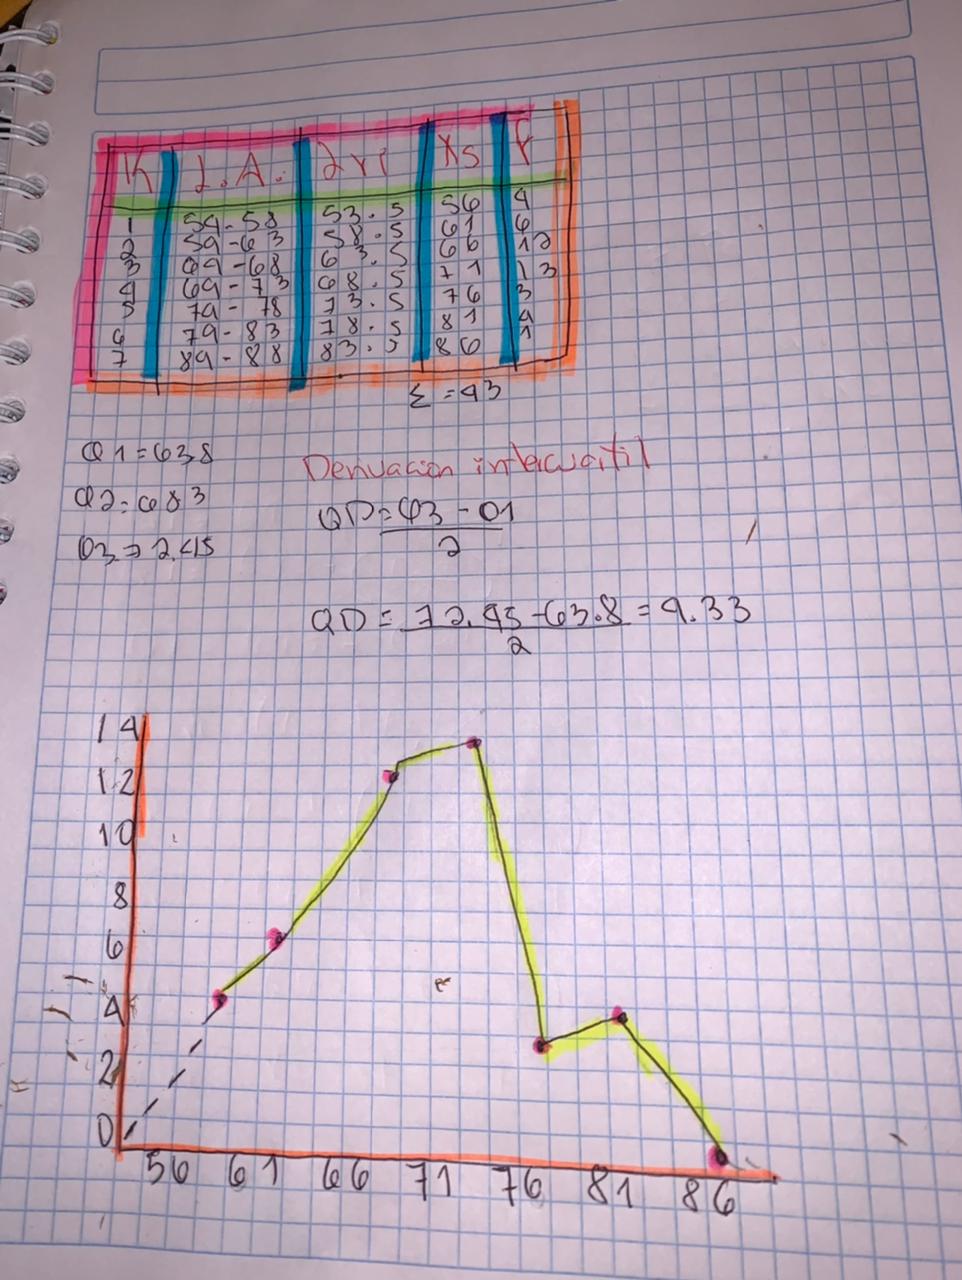 K I.A. Lri Xs F
1 54-58 53.5 56 4
2 59-63 58.5 61 6
3 64-68 63.5 66 12
4 69-73 68.5 71 13
5 74-78 73.5 76 3
6 79-83 78.5 81 4
7 84-88 83.5 86 1
Σ=43
Q1=638
Q2=683
Q3=72.45
Derivacion intercuartil
QD=Q3-Q1
2
QD=72.45-63.8=4.33
2
14
12
10
8
6
4
2
0
56 61 66 71 76 81 86